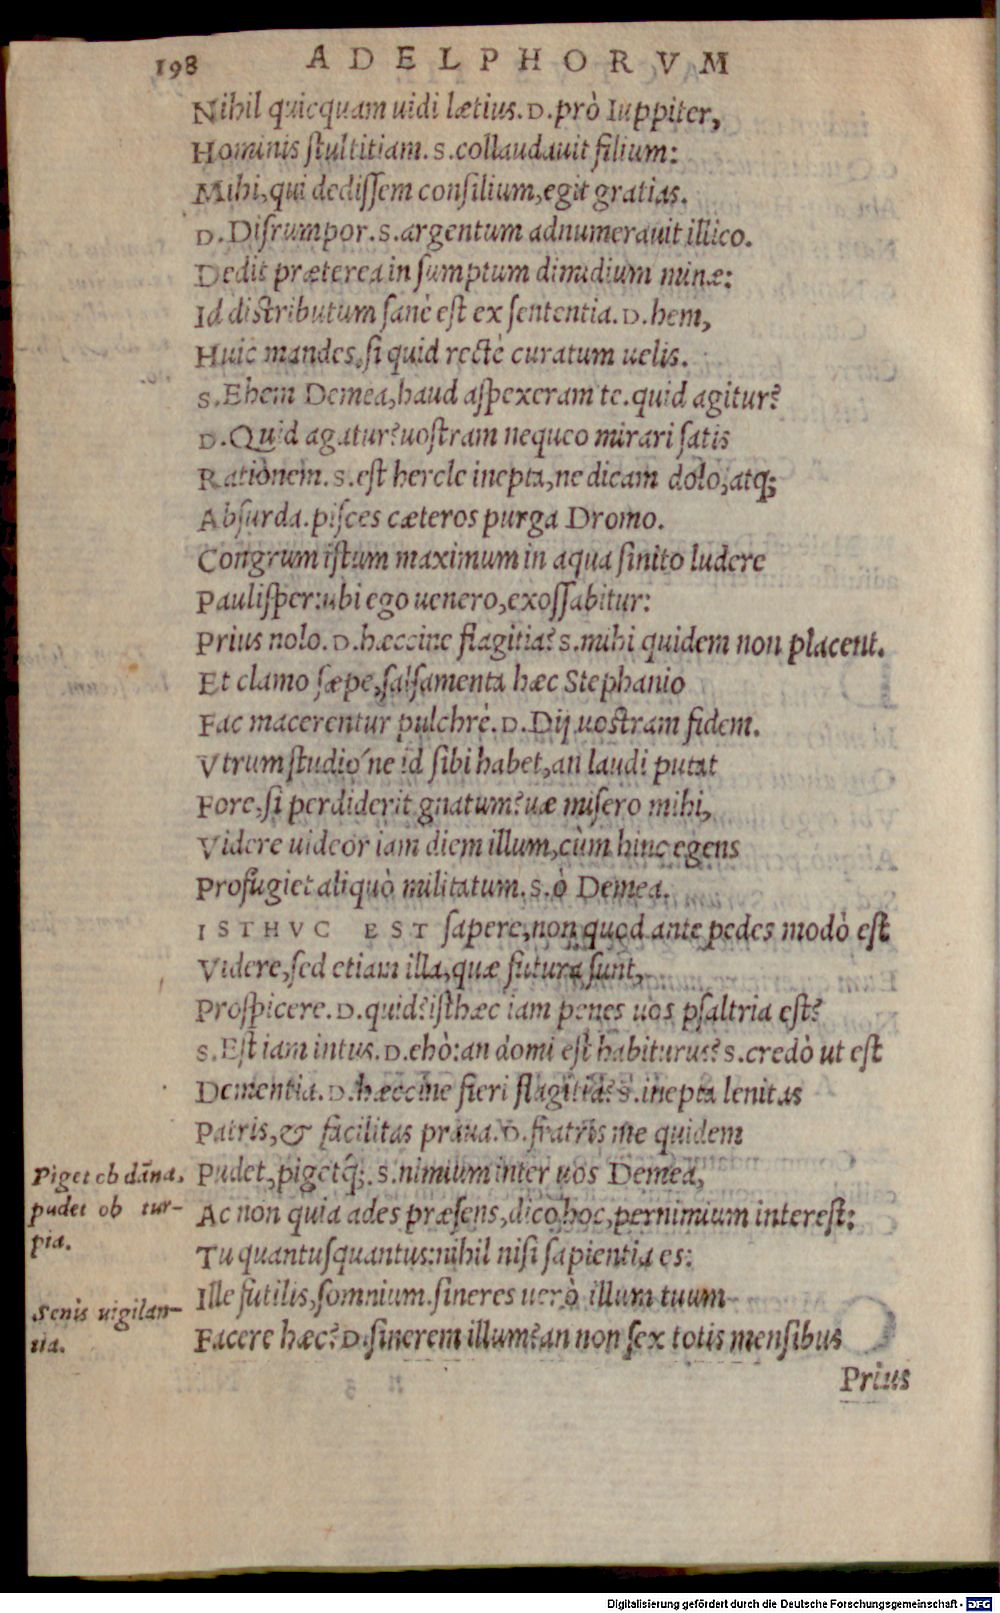 198 ADELPHORVM
Nihil quicquam uidi lætius. D. prò Iuppiter,
Hominis ſtultitiam. S. collaudauit filium:
Mihi, qui dediſſem conſilium, egit gratias.
D. Diſrumpor. S. argentum adnumerauit illico.
Dedit præterea in ſumptum dimidium minæ:
Id diſtributum ſanè eſt ex ſententia. D. hem,
Huic mandes, ſi quid rectè curatum uelis.
S. Ehem Demea, haud aſpexeram te. quid agitur?
D. Quid agatur? uoſtram nequeo mirari ſatis
Rationem. S. eſt hercle inepta, ne dicam dolo, atq;
Abſurda. piſces cæteros purga Dromo.
Congrum iſtum maximum in aqua ſinito ludere
Pauliſper: ubi ego uenero, exoſſabitur:
Prius nolo. D. hæccine flagitia? S. mihi quidem non placent.
Et clamo ſæpe, ſalſamenta hæc Stephanio
Fac macerentur pulchrè. D. Dij uoſtram fidem.
Vtrum ſtudió ne id ſibi habet, an laudi putat
Fore, ſi perdiderit gnatum? uæ miſero mihi,
Videre uideor iam diem illum, cùm hinc egens
Profugiet aliquò militatum. S. ô Demea.
ISTHVC EST ſapere, non quod ante pedes modò eſt
Videre, ſed etiam illa, quæ futura ſunt,
Proſpicere. D. quid? iſthæc iam penes uos pſaltria eſt?
S. Eſt iam intus. D. ehò: an domi eſt habiturus? S. credò ut eſt
Dementia. D. hæccine fieri flagitia? S. inepta lenitas
Patris, & facilitas praua. D. fratris me quidem
Pudet, pigetq́;. S. nimium inter uos Demea,
Ac non quia ades præſens, dico hoc, pernimium intereſt:
Tu quantuſquantus: nihil niſi ſapientia es:
Ille futilis, ſomnium. ſineres uerò illum tuum
Facere hæc? D. ſinerem illum? an non ſex totis menſibus
Prius
Piget ob dāna,
pudet ob tur-
pia.
Senis uigilan-
tia.
Digitalisierung gefördert durch die Deutsche Forschungsgemeinschaft - DFG